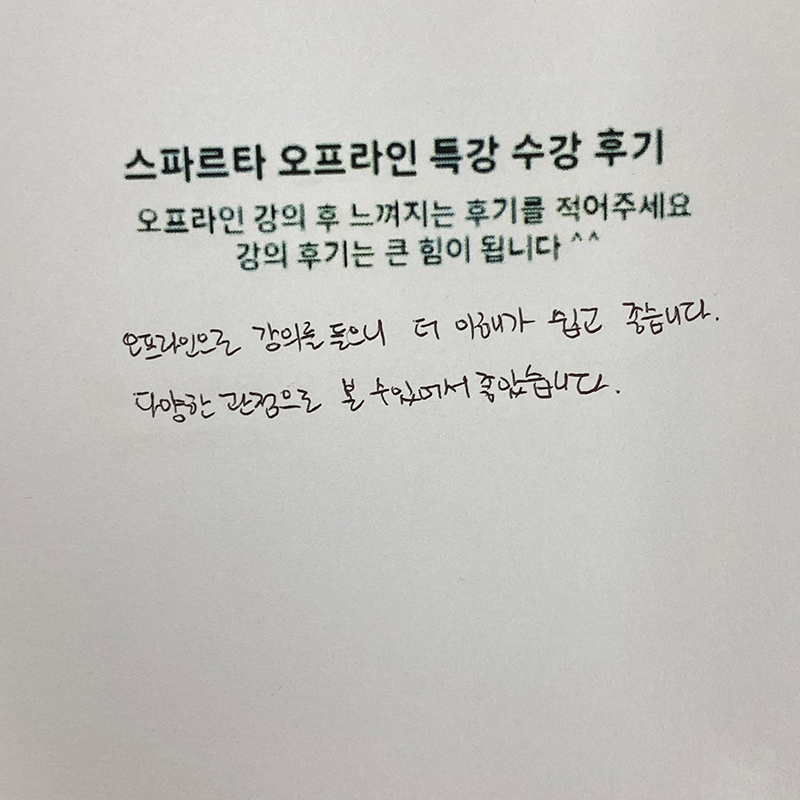 스파르타 오프라인 특강 수강 후기
오프라인 강의 후 느껴지는 후기를 적어주세요
강의 후기는 큰 힘이 됩니다 ^^
오프라인으로 강의를 들으니 더 이해가 쉽고 좋습니다.
다양한 관점으로 볼 수있어서 좋았습니다.